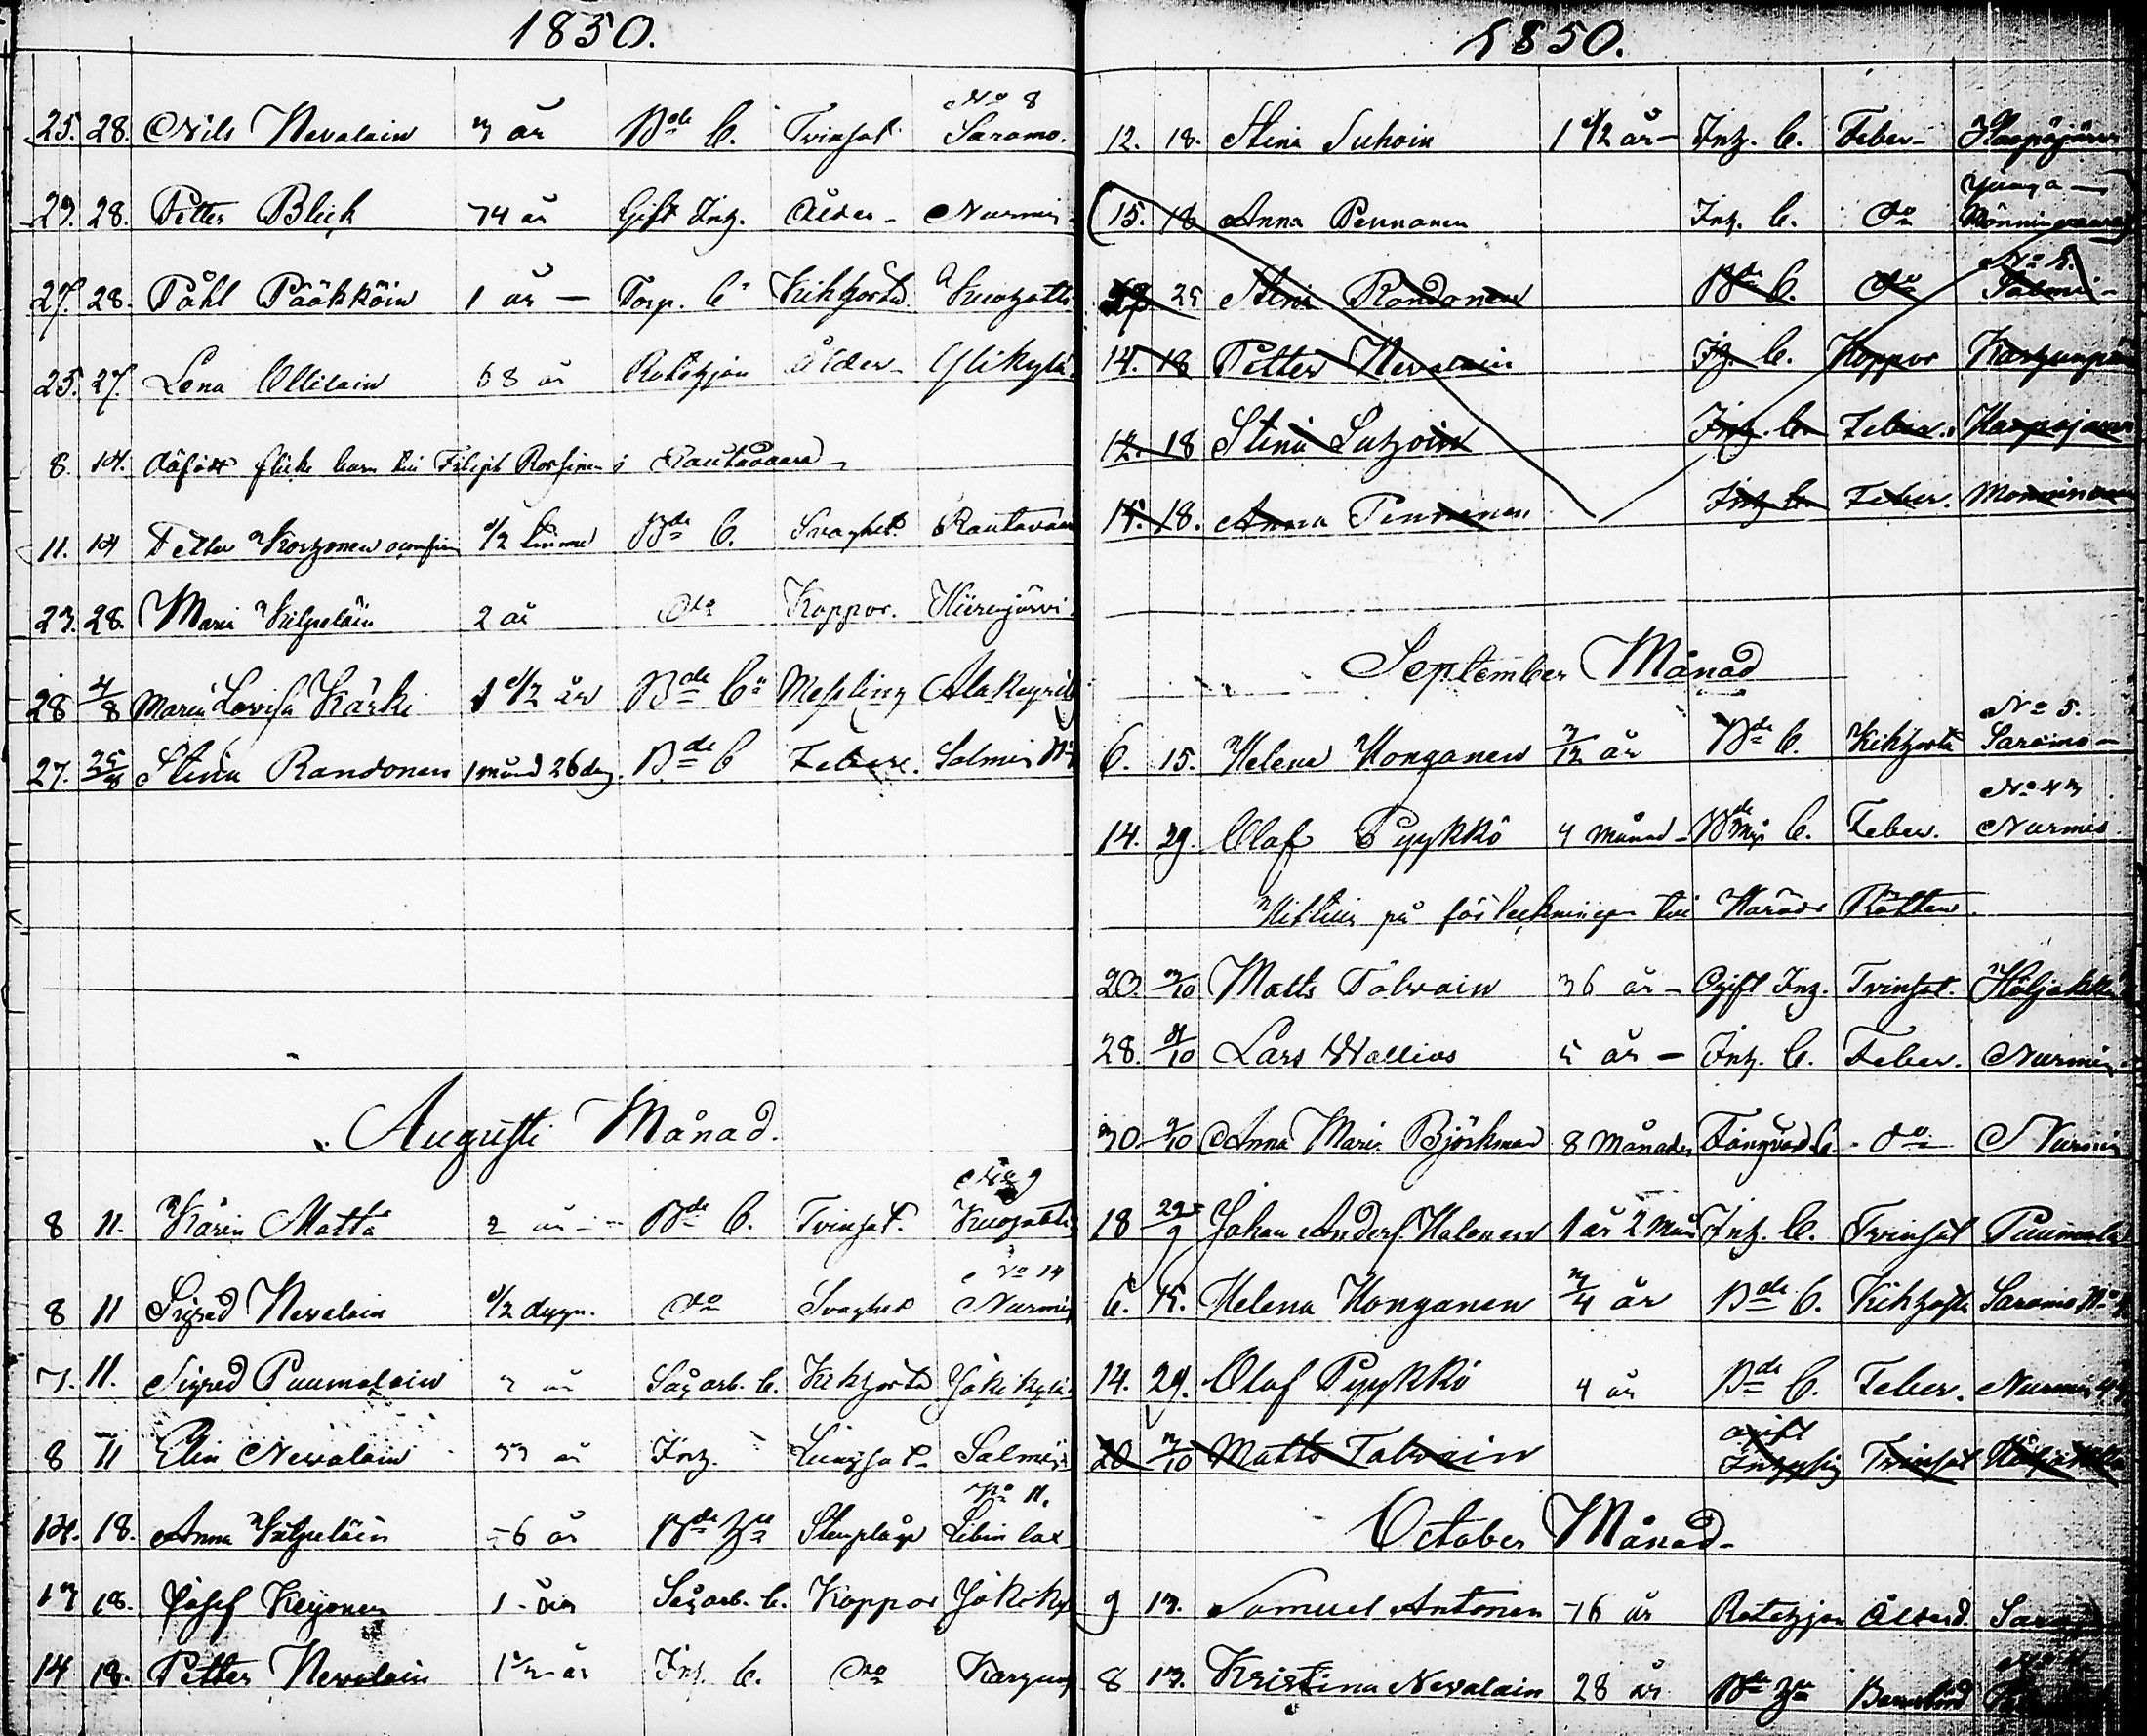 1850.
No 8
25. 28. Nils Nevalain 3 år Bde C. Tvinsot Saramo.
23. 28. Petter Blick 74 år Gift Inh. Ålder Nurmis
27. 28. Påhl Pääkköin 1 år — Torp. C Kikhosta Kuohatti
25. 27. Lena Ollilain 68 år Rotehjon Ålder Ylikylä
8. 14. dödfödt flicke barn till Filip Rossinen i Rautavaara
11. 14 Petter Korhonen 1/2 timme Bde C. Svaghet Rautavaara
23. 28. Maria Kilpeläin 2 år do Koppor. Hiirenjärvi
28 4/8 Maria Lovisa Kärki 1 1/2 år Bde C Messling Alakeyritti
27. 25/8 Stina Randonen 1 månad 26 dag. Bde C Feber. Salmis
Augusti Månad.
8 11. Karin Matta 2 år Bde C. Tvinsot. Kuohatti
No 14
8 11 Sigred Nevalain 1/2 dygn. do Svaghet Nurmis
7. 11. Sigred Puumalain 3 år Sågarb. C. Kikhosta Jokikylä
8 11 Elin Nevalain 33 år Inh. Lungsot Salmis
No 11.
14. 18. Anna Kilpeläin 56 år Bde Stenplåga
13 18. Josef Keyonen 1 år Sågarb. C. Koppor Jokiky
14 18. Petter Nevalain 1 1/2 år Inh. C. do Karhun
1850.
12. 18. Stina Suhoin 1 1/2 år — Inh. C. Feber — Haapajärvi
15. 18 Anna Pennanen Inh. C. do Mönninvaara
27 25 Stina Randonen Bde C. do Salmi
14. 18 Petter Nevalain Ih. C. Koppor Karhunpää
12. 18 Stina Suhoin Inh. C. Feber. Haapajärvi
15. 18. Anna Pennanen Inh C. Feber. Mönninvaara
September Månad
No 5.
6. 15. Helena Honganen 3/12 år Bde C. Kikhosta Saramo —
No 43
14. 29. Olaf Pyykkö 4 månad C. Feber. Nurmis.
på till Härads Rätten.
20. 3/10 Matts Tolvain 36 år — Ogift Inh. Tvinsot. Höljäkkä
28. 8/10 Lars Wallius 5 år — Inh. C. Feber. Nurmis
30. 9/10 Anna Maria Björkman 8 Månader Fångvad. C. do Nurmis
18 29/9 Johan Anders. Halonen 1 år 2 Mån Inh. C. Tvinsot Puumala
6. 15. Helena Honganen 3/4 år Bde C. Kikhosta Saramo
14. 29. Olaf Pyykkö 4 år Bde C. Feber. Nurmis 43
20 3/10 Matts Tolvain ogift Inhysing Tvinsot Höljäkkä
October Månad
9 13. Samuel Antonen 76 år Rotehjon Ålderd.
8 13. Kristina Nevalain 28 år Bde Barnsbörd